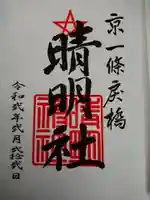 京一條戻橋
晴明社
令和弐年弐月弐拾弐日